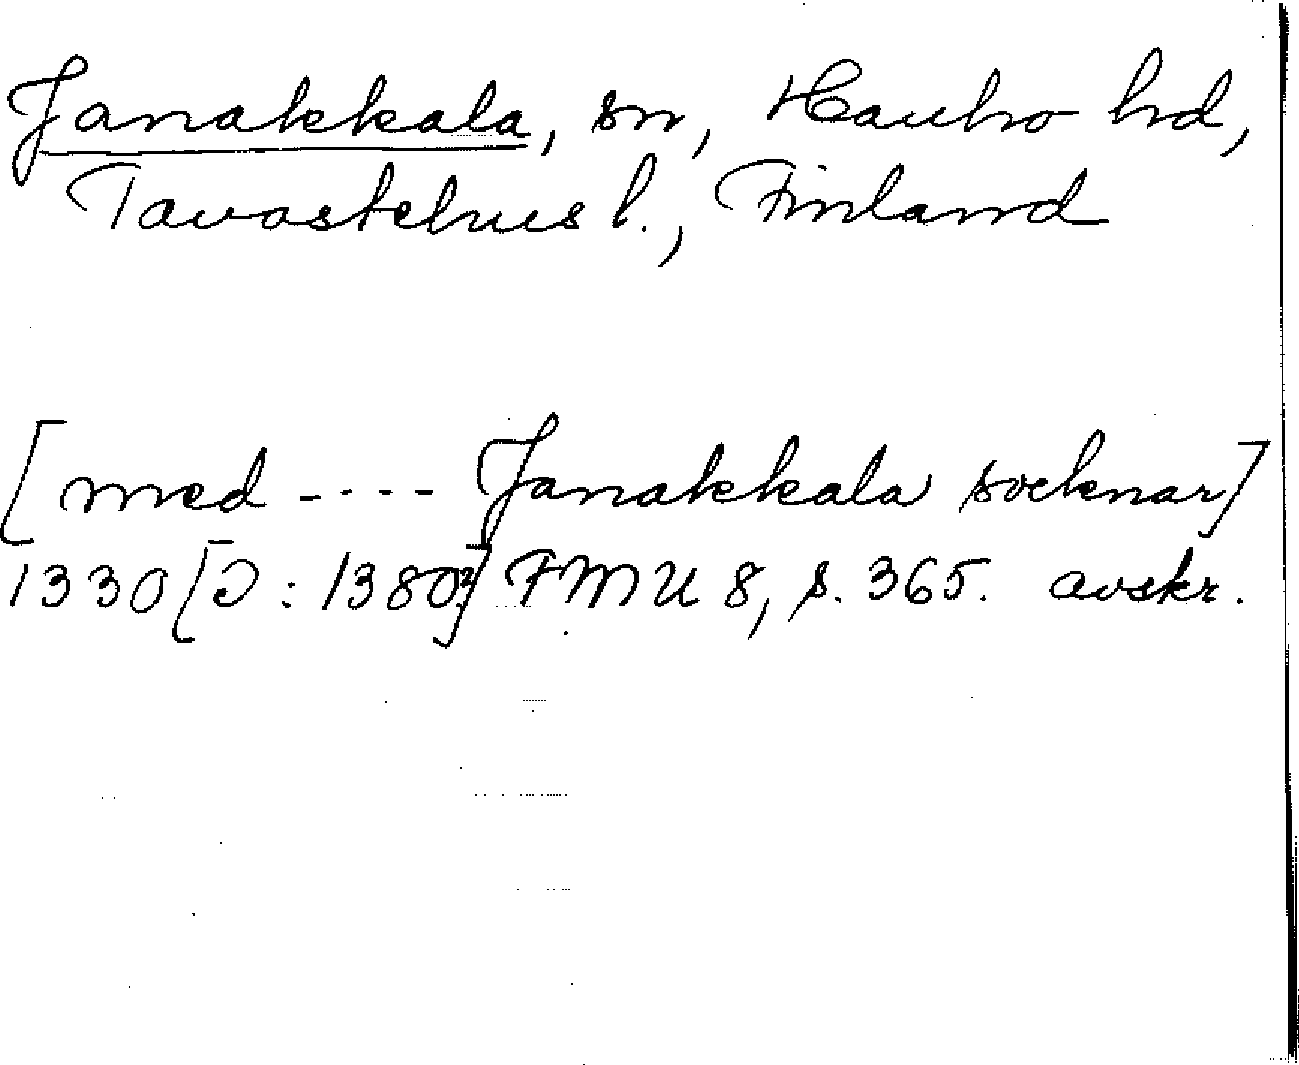 Janakkala, sn, Hauho hd,
Tavastehus l., Finland
[med ---- Janakkala socknar]
1330 [Ɔ: 1380?] FMU 8, s. 365. avskr.